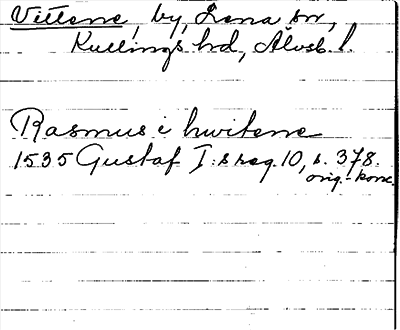 Vittene, by, Lena sn,
Kullings hd, Älvsb. l.
Rasmus i hwitene
1535 Gustaf I:s reg. 10, s. 378.
orig.-konc.